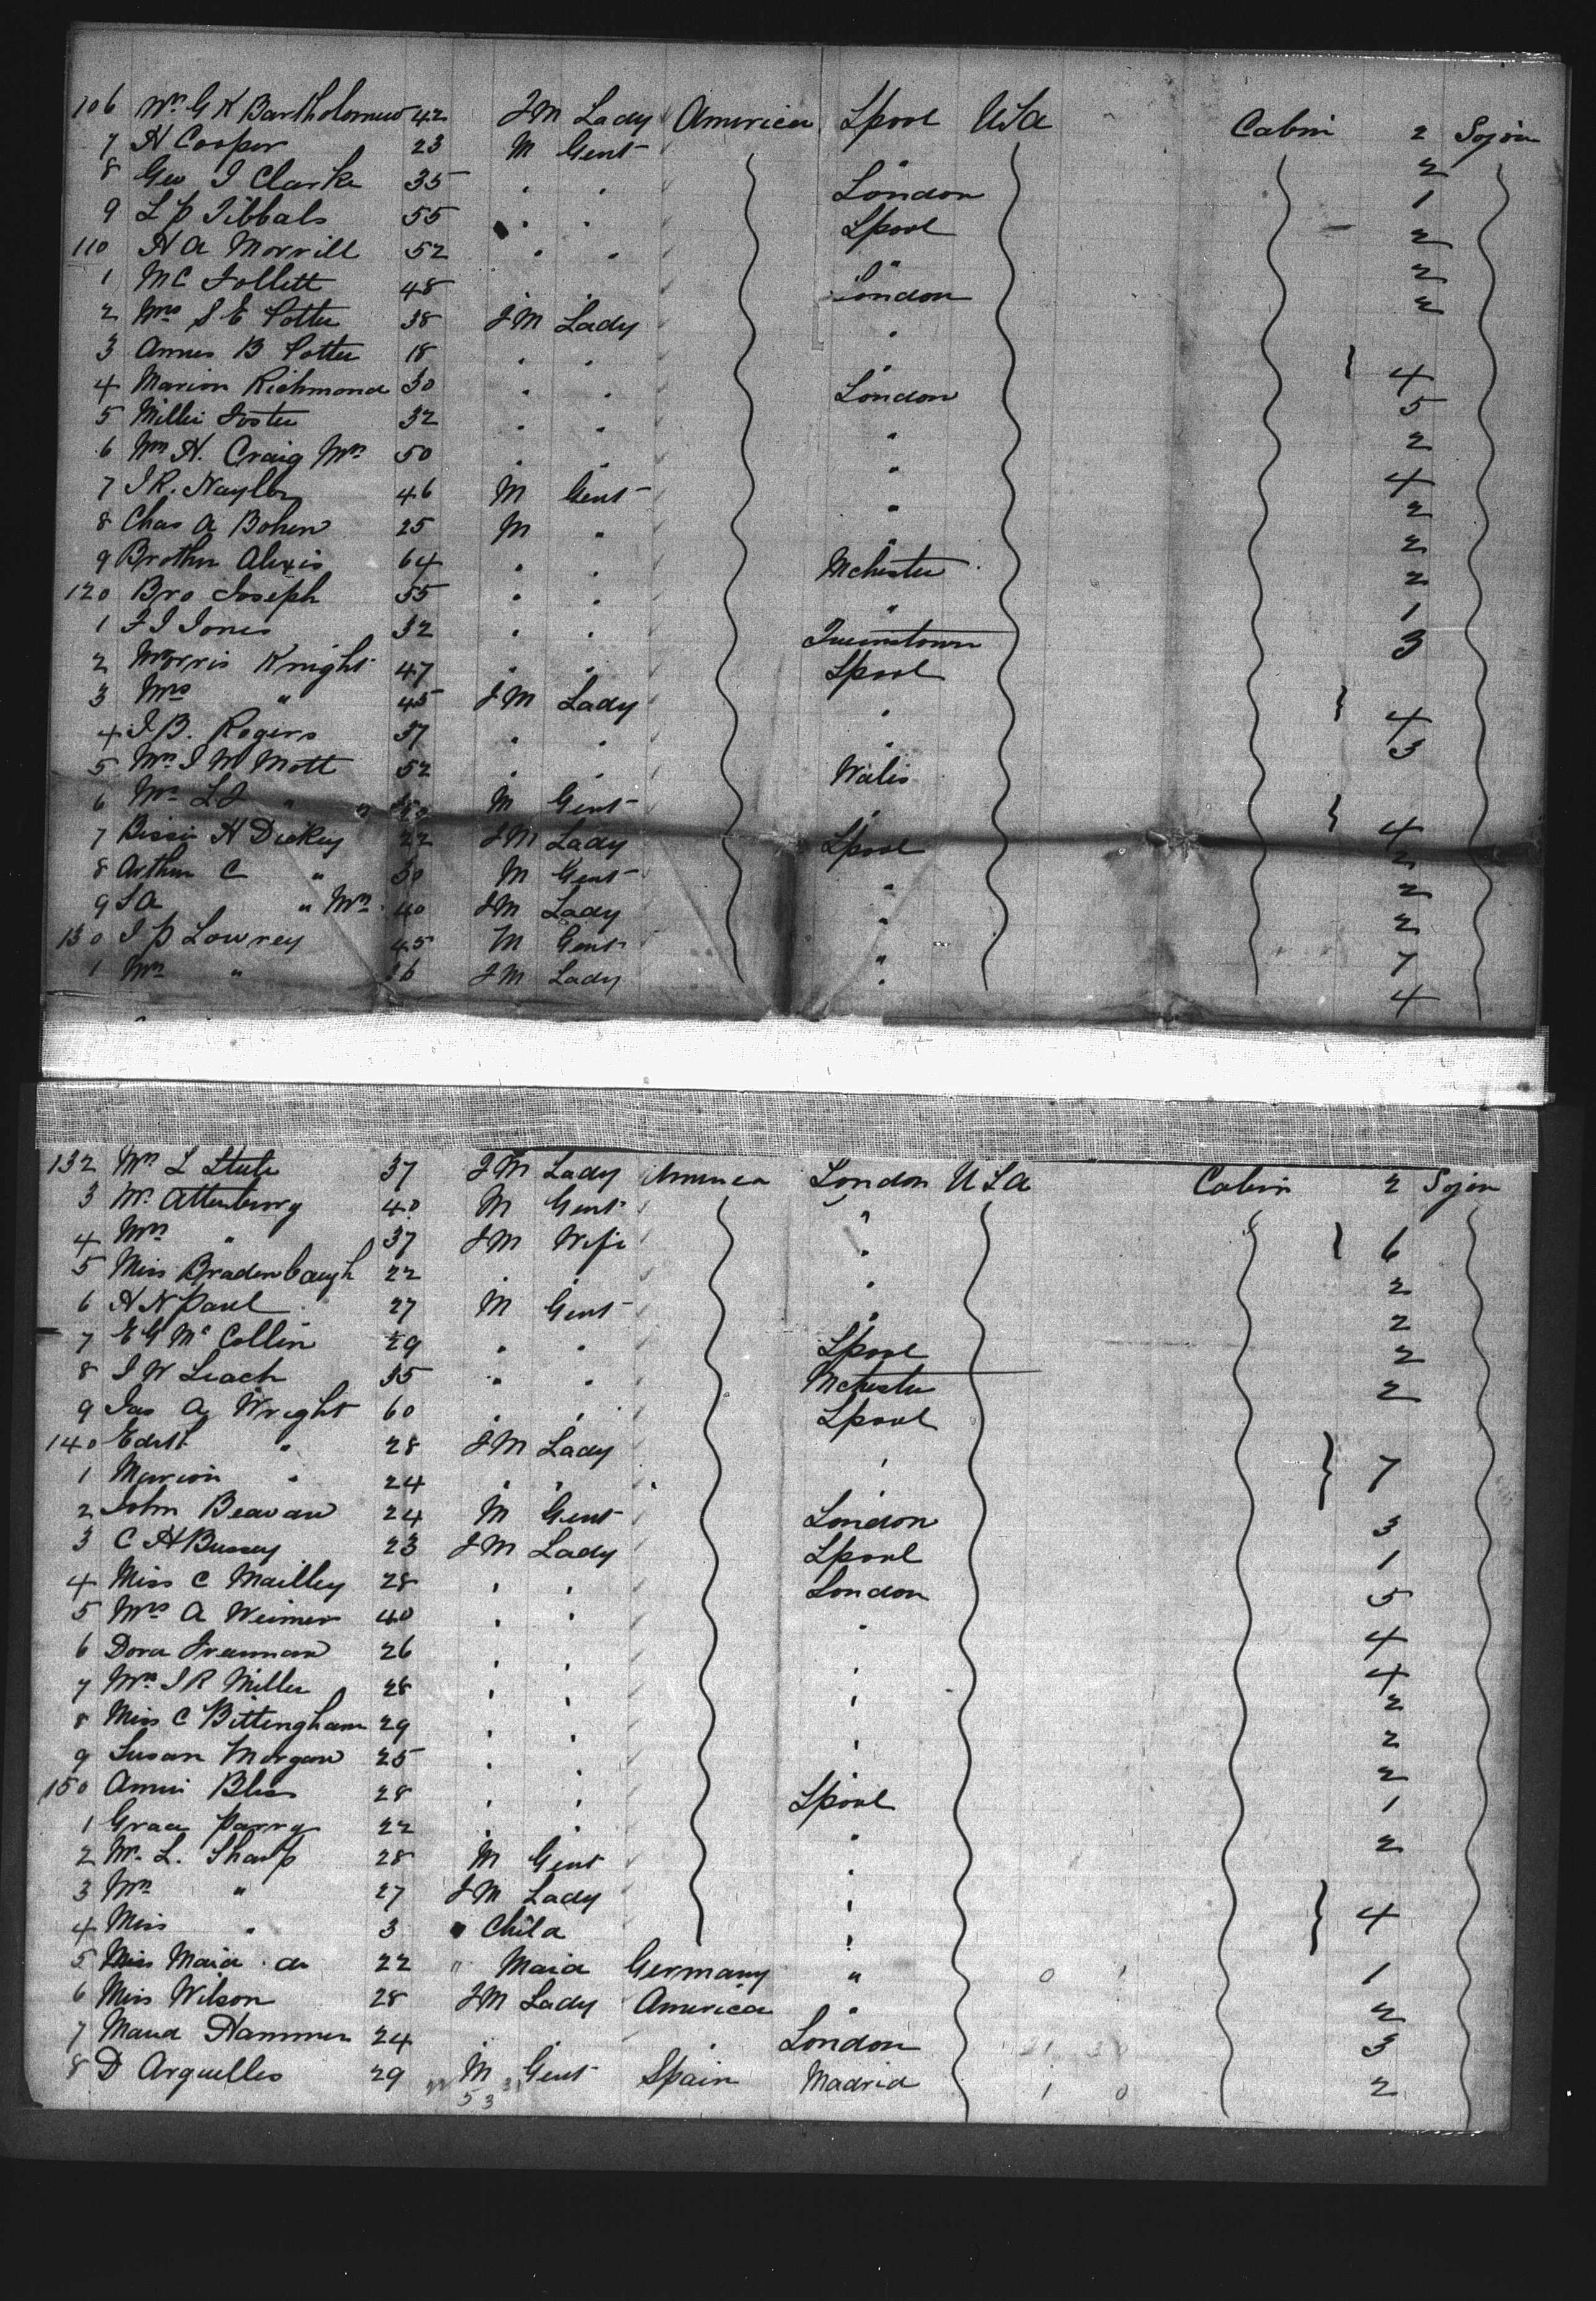 106 Mrs G K Bartholomew 42 F M Lady America Lpool USA Cabin 2 Sojou
7 H Cooper 23 M Gent " 2
8 Geo I Clarke 35 " " London 1
9 L P Tibbals 55 " " Lpool 2
110 H A Morrill 52 " " " 2
1 M C Follett 48 " " London 2
2 Mrs S E Potter 38 F M Lady "
3 Annie B Potter 18 " " " } 4
4 Marion Richmond 30 " " London 5
5 Millie Foster 32 " " " 2
6 Wm H. Craig Mrs 50 " " " 4
7 J R. Naylor 46 M Gent " 2
8 Chas A Bohen 25 M " " 2
9 Brother Alexis 64 " " Mchester 2
120 Bro Joseph 55 " " " 1
1 F J Jones 32 " " Queenstown 3
2 Morris Knight 47 " " Lpool
3 Mrs " 45 F M Lady " } 4
4 J B. Rogers 37 " " " 3
5 Mrs J W Mott 52 " " Wales
6 Mr L J " M Gent " } 4
7 Bessie H Dickey 22 F M Lady Lpool 2
8 Arthur C " 30 M Gent " 2
9 S A " Mrs 40 F M Lady " 2
130 J P Lowrey 45 M Gent " 7
1 Mrs " 36 F M Lady " 4
132 Mrs L Stute 37 F M Lady America London USA Cabin 2 Sojou
3 Mr Attenburg 40 M Gent "
4 Mrs " 37 F M Wife " } 6
5 Miss Bradenbaugh 22 " " " 2
6 H N Paul 27 M Gent " 2
7 E G McCollin 29 " " Lpool 2
8 J W Leach 35 " " Mchester 2
9 Jas A Wright 60 " " Lpool
140 Edith " 28 F M Lady " } 7
1 Marion " 24 " " "
2 John Beavan 24 M Gent London 3
3 C H Bussey 23 F M Lady Lpool 1
4 Miss C Mailley 28 " " London 5
5 Mrs A Weimer 40 " " " 4
6 Dora Freeman 26 " " " 4
7 Mrs J R Miller 28 " " " 2
8 Miss C Bittingham 29 " " " 2
9 Susan Morgan 25 " " " 2
150 Annie Bliss 28 " " Lpool 1
1 Grace Parry 22 " " " 2
2 Mr. L. Sharp 28 M Gent "
3 Mrs " 27 F M Lady " } 4
4 Miss " 3 " Child "
5 Miss Maid 22 " Maid Germany " 0 1 1
6 Miss Wilson 28 F M Lady America " 2
7 Maud Hammer 24 " " " London 3
8 D Arguelles 29 M Gent Spain Madrid 1 0 2
53